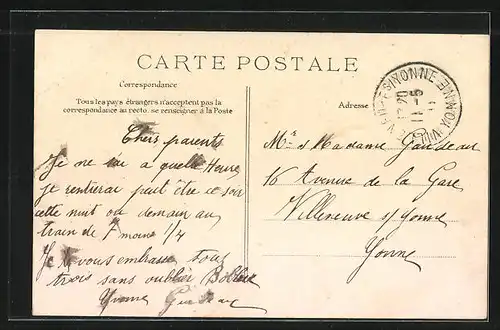 CARTE POSTALE
Correspondance
Tous les pays étrangers n'acceptent pas la
correspondance au recto, se renseigner à la Poste
Adresse
Chers parents
Je ne sai à quelle Heure
je rentrerai peut être ce soir
cette nuit ou demain au
train de 7 moins 1/4
Je vous embrasse tous
trois sans oublier
Yvonne
Mr et Madame
16 Avenue de la Gare
Villeneuve s/ Yonne
Yonne
YONNE